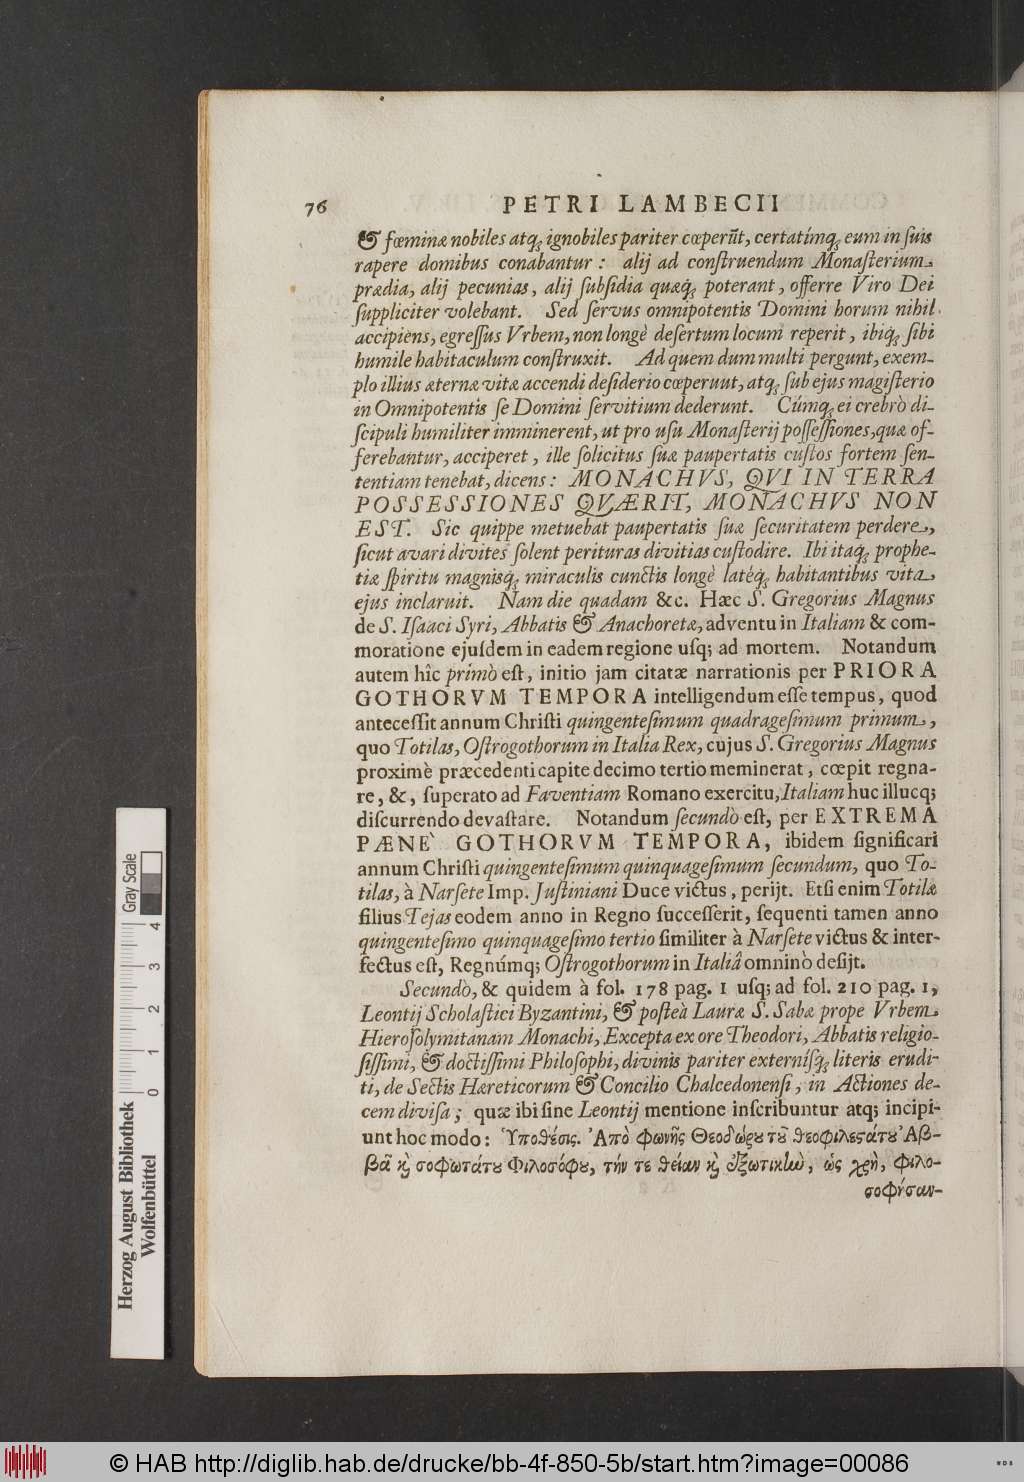 76 PETRI LAMBECII
& fœminæ nobiles atq; ignobiles pariter cœperũt, certatímq; eum in ſuis
rapere domibus conabantur : alij ad conſtruendum Monaſterium
prædia, alij pecunias, alij ſubſidia quæq; poterant, offerre Viro Dei
ſuppliciter volebant. Sed ſervus omnipotentis Domini horum nihil
accipiens, egreſſus Vrbem, non longè deſertum locum reperit, ibiq; ſibi
humile habitaculum conſtruxit. Ad quem dum multi pergunt, exem-
plo illius æternæ vitæ accendi deſiderio cœperunt, atq; ſub ejus magiſterio
in Omnipotentis ſe Domini ſervitium dederunt. Cúmq; ei crebrò di-
ſcipuli humiliter imminerent, ut pro uſu Monaſterij poſſeſſiones, quæ of-
ferebantur, acciperet, ille ſolicitus ſuæ paupertatis cuſtos fortem ſen-
tentiam tenebat, dicens: MONACHVS, QVI IN TERRA
POSSESSIONES QVÆRIT, MONACHVS NON
EST. Sic quippe metuebat paupertatis ſuæ ſecuritatem perdere,
ſicut avari divites ſolent perituras divitias cuſtodire. Ibi itaq; prophe-
tiæ ſpiritu magnisq; miraculis cunctis longè latéq; habitantibus vita
ejus inclaruit. Nam die quadam &c. Hæc S. Gregorius Magnus
de S. Iſaaci Syri, Abbatis & Anachoretæ, adventu in Italiam & com-
moratione ejuſdem in eadem regione uſq; ad mortem. Notandum
autem hîc primò eſt, initio jam citatæ narrationis per PRIORA
GOTHORVM TEMPORA intelligendum eſſe tempus, quod
anteceſſit annum Chriſti quingenteſimum quadrageſimum primum,
quo Totilas, Oſtrogothorum in Italia Rex, cujus S. Gregorius Magnus
proximè præcedenti capite decimo tertio meminerat, cœpit regna-
re, &, ſuperato ad Faventiam Romano exercitu, Italiam huc illucq;
diſcurrendo devaſtare. Notandum ſecundò eſt, per EXTREMA
PÆNÈ GOTHORVM TEMPORA, ibidem ſignificari
annum Chriſti quingenteſimum quinquageſimum ſecundum, quo To-
tilas, à Narſete Imp. Juſtiniani Duce victus, perijt. Etſi enim Totilæ
filius Tejas eodem anno in Regno ſucceſſerit, ſequenti tamen anno
quingenteſimo quinquageſimo tertio ſimiliter à Narſete victus & inter-
fectus eſt, Regnúmq; Oſtrogothorum in Italiâ omninò deſijt.
Secundò, & quidem à fol. 178 pag. 1 uſq; ad fol. 210 pag. 1,
Leontij Scholaſtici Byzantini, & poſteà Lauræ S. Sabæ prope Vrbem
Hieroſolymitanam Monachi, Excepta ex ore Theodori, Abbatis religio-
ſiſſimi, & doctiſſimi Philoſophi, divinis pariter externíſq; literis erudi-
ti, de Sectis Hæreticorum & Concilio Chalcedonenſi, in Actiones de-
cem diviſa; quæ ibi ſine Leontij mentione inſcribuntur atq; incipi-
unt hoc modo: Ὑποθέσις. Ἀπὸ φωνῆς Θεοδώρου τοῦ θεοφιλεστάτου Ἀβ-
βᾶ καὶ σοφωτάτου Φιλοσόφου, τήν τε θείαν καὶ ἐξωτικὴν, ὡς χρὴ, φιλο-
σοφήσαν-
Herzog August Bibliothek
Wolfenbüttel
0 1 2 3 4
Gray Scale
© HAB http://diglib.hab.de/drucke/bb-4f-850-5b/start.htm?image=00086